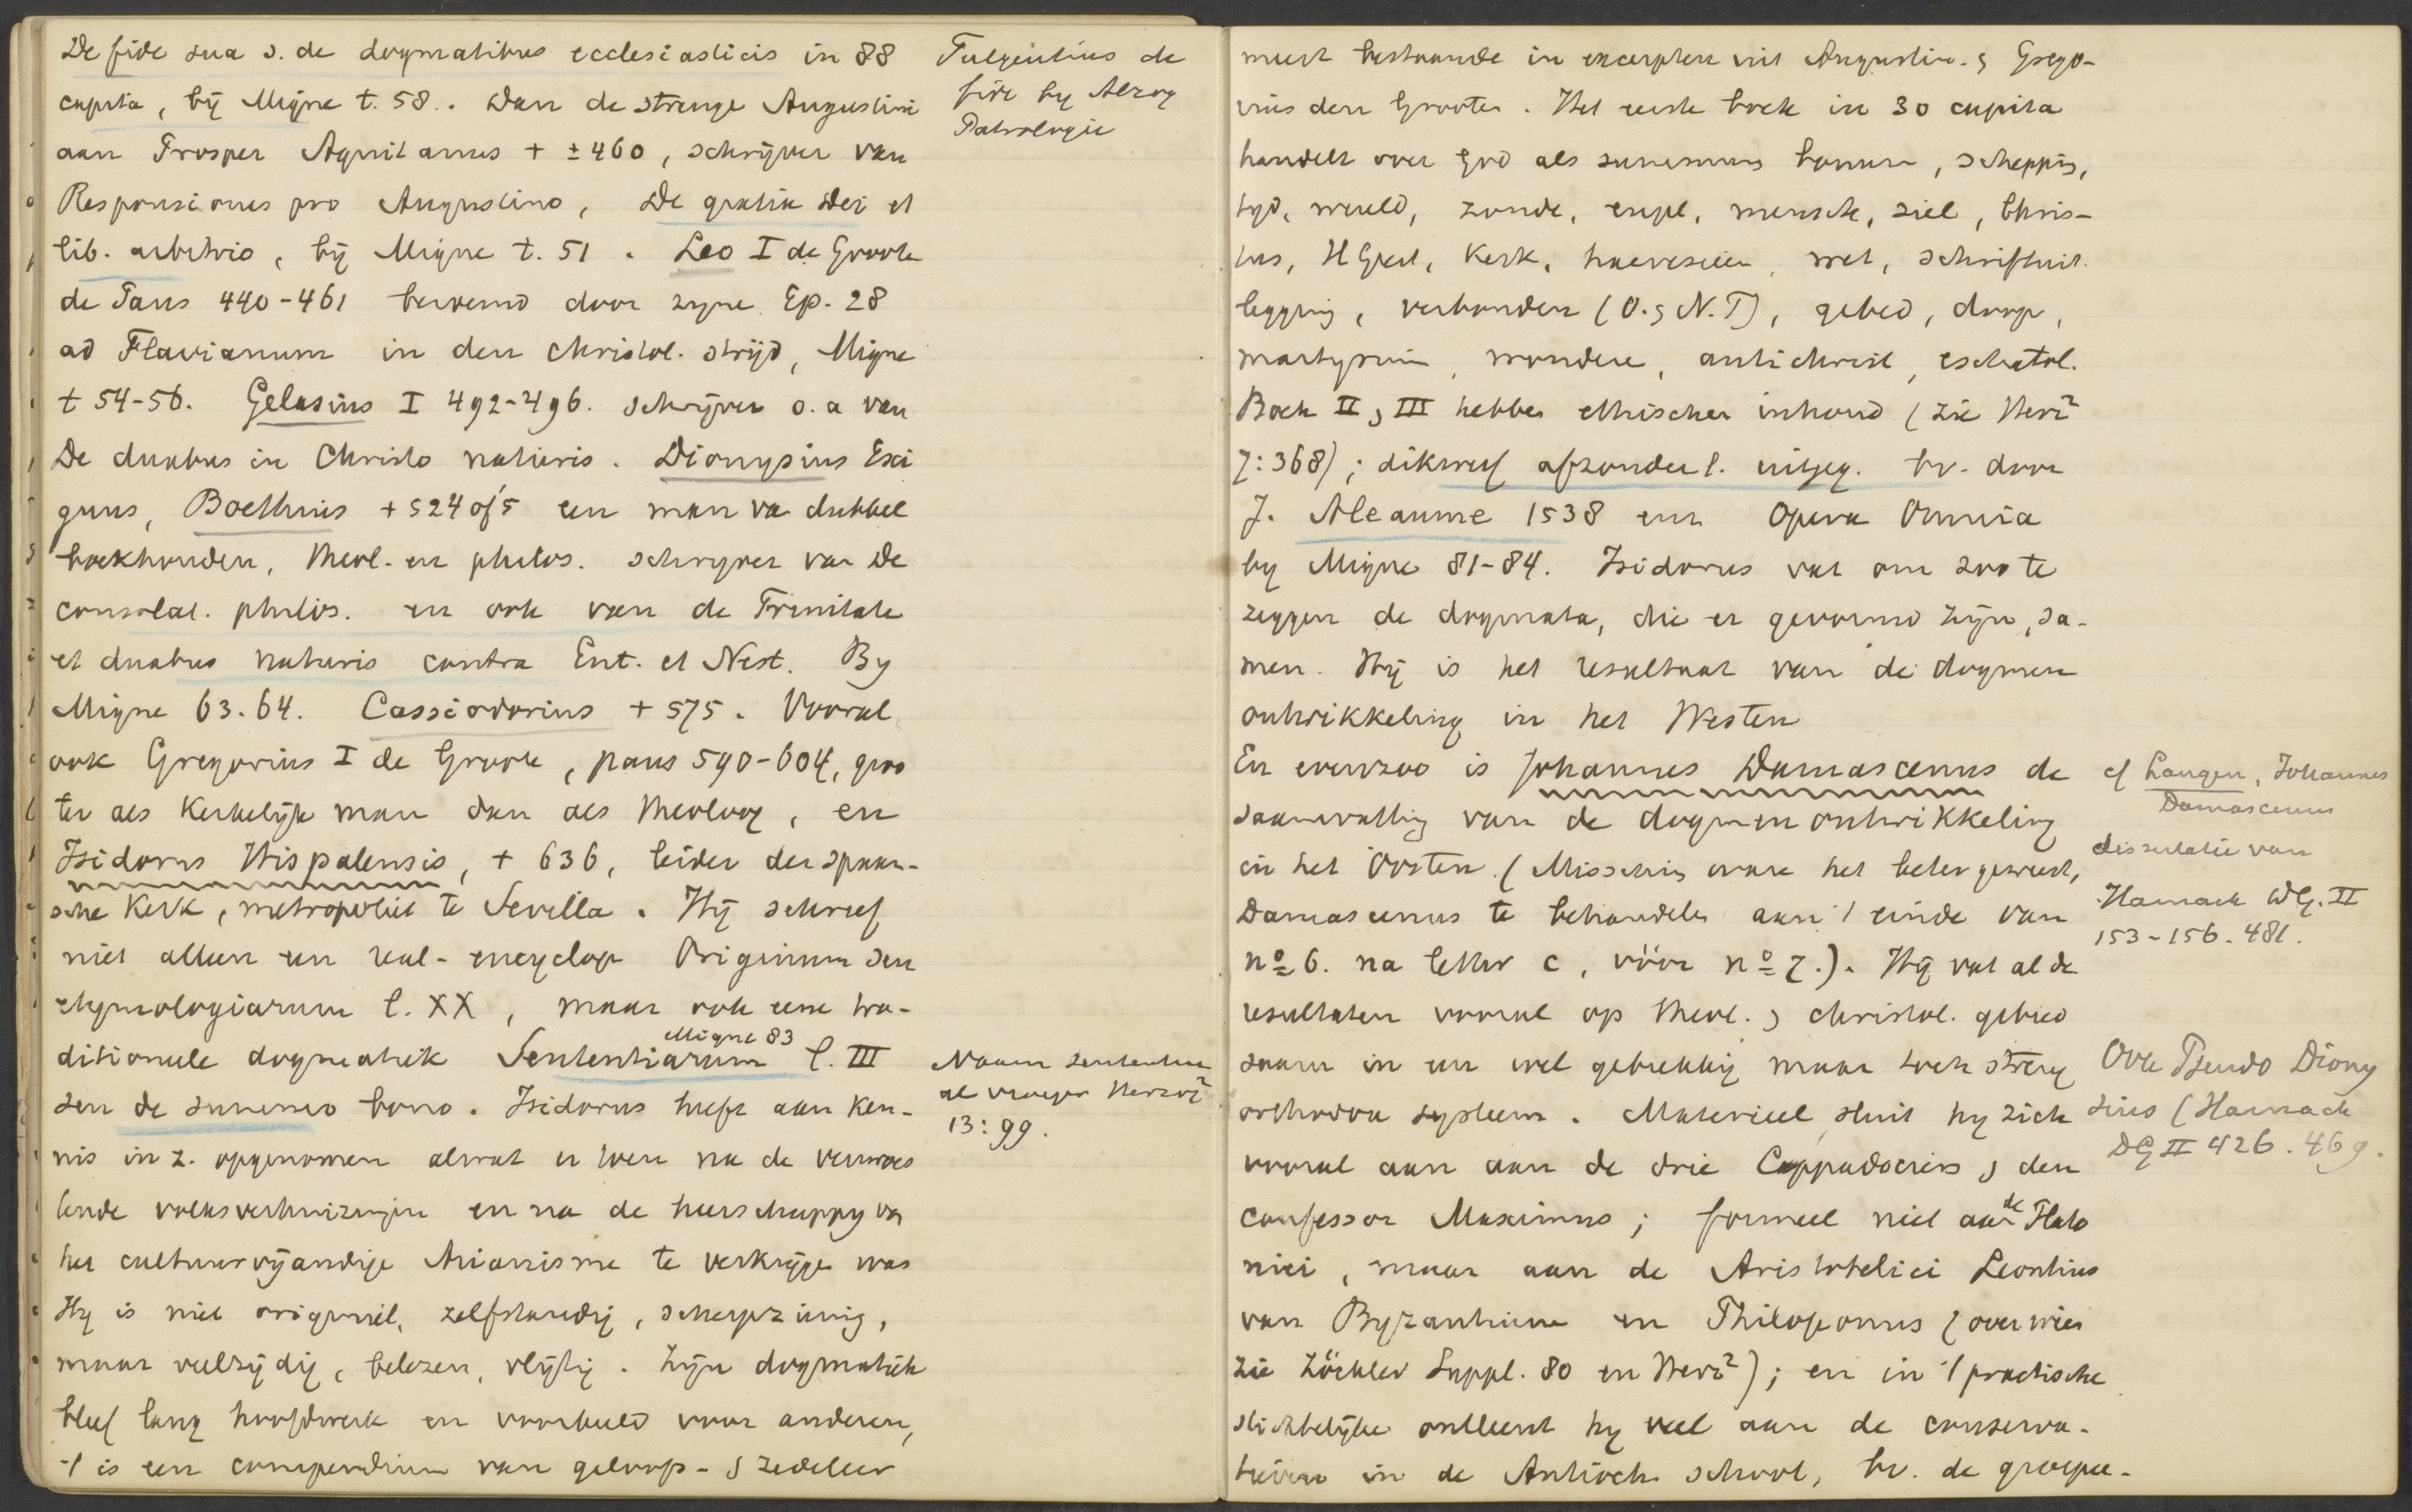 De fide sua s. de dogmatibus ecclesiasticis in 88
capita, bij Migne t. 58. Dan de strenge Augustini
aan Prosper Aquitanus + ± 460, schrijver van
Responsiones pro Augustino, De gratia Dei et
lib. arbitrio, bij Migne t. 51. Leo I de Groote
de Paus 440-461 beroemd door zijne Ep. 28
ad Flavianum in den christol. strijd, Migne
t 54-56. Gelasius I 492-496. schrijver o. a van
De duabus in Christo naturis. Dionysius Exi
guus, Boethius + 524 of 5 een man va dubbel
boekhouden, theol. en philos. schryver van De
consolat. philos. en ook van de Trinitate
et duabus naturis contra Eut. et Nest. By
Migne 63.64. Cassiodorius + 575. Vooral
ook Gregorius I de Groote, paus 590-604, groo
ter als kerkelijk man dan als theoloog, en
Isidorus Hispalensis, + 636, leider der spaan-
sche Kerk, metropoliet te Sevilla. Hij schreef
niet alleen een real-encyclop Originum seu
etymologiarum l. XX, maar ook eene tra-
ditioneele dogmatiek Sententiarum l. III
Migne 83
seu de summo bono. Isidorus heeft aan ken-
nis in z. opgenomen alwat er toen na de verwoes
tende volksverhuizingen en na de heerschappy van
het cultuurvijandige Arianisme te verkrijgen was
Hy is niet origineel, zelfstandig, scherpzinnig,
maar veelzijdig, belezen, vlijtig. Zijn dogmatiek
bleef lang hoofdwerk en voorbeeld voor anderen,
't is een compendium van geloofs- & zedeleer
Fulgentius de
fide by Alzog
Patrologie
Naam sententiae
al vroeger Herzog²
13:99.
meest bestaande in excerpten uit Augustin. & Grego-
rius den Grooten. Het eerste boek in 30 capita
handelt over God als summum bonum, schepping,
tyd, wereld, zonde, engel, mensch, ziel, Chris-
tus, H Geest, Kerk, haeresieën, wet, schriftuit
legging, verbonden (O. & N. T), gebed, doop,
martyrium, wonderen, antichrist, eschatol.
Boek II & III hebben ethischen inhoud (zie Herz²
7:368); dikwerf afzonderl. uitgeg. bv. door
J. Aleaume 1538 en Opera Omnia
by Migne 81-84. Isidorus vat om zoo te
zeggen de dogmata, die er gevormd zijn, sa-
men. Hij is het resultaat van de dogmen
ontwikkeling in het Westen
En evenzoo is Johannes Damascenus de
saamvatting van de dogmenontwikkeling
in het Oosten. (Misschien ware het beter geweest,
Damascenus te behandelen aan 't einde van
nº 6. na letter c, vóór nº 7.). Hij vat al de
resultaten vooral op theol. & christol. gebied
saam in een wel gebrekkig maar toch streng
orthodox systeem. Materieel sluit hy zich
vooral aan aan de drie Cappadociers & den
confessor Maximus; formeel niet aan de Plato
nici, maar aan de Aristotelici Leontius
van Byzantium en Philoponus (over wien
zie Zöckler Suppl. 80 en Herz²); en in 't practische
stichtelijke ontleent hy veel aan de conserva-
tieven in de Antioch. school, bv. de groepee-
cf Langen, Johannes
Damascenus
dissertatie van
Harnack DG. II
153-156. 481.
Ook Pseudo Diony
sius (Harnack
DG II 426. 469.